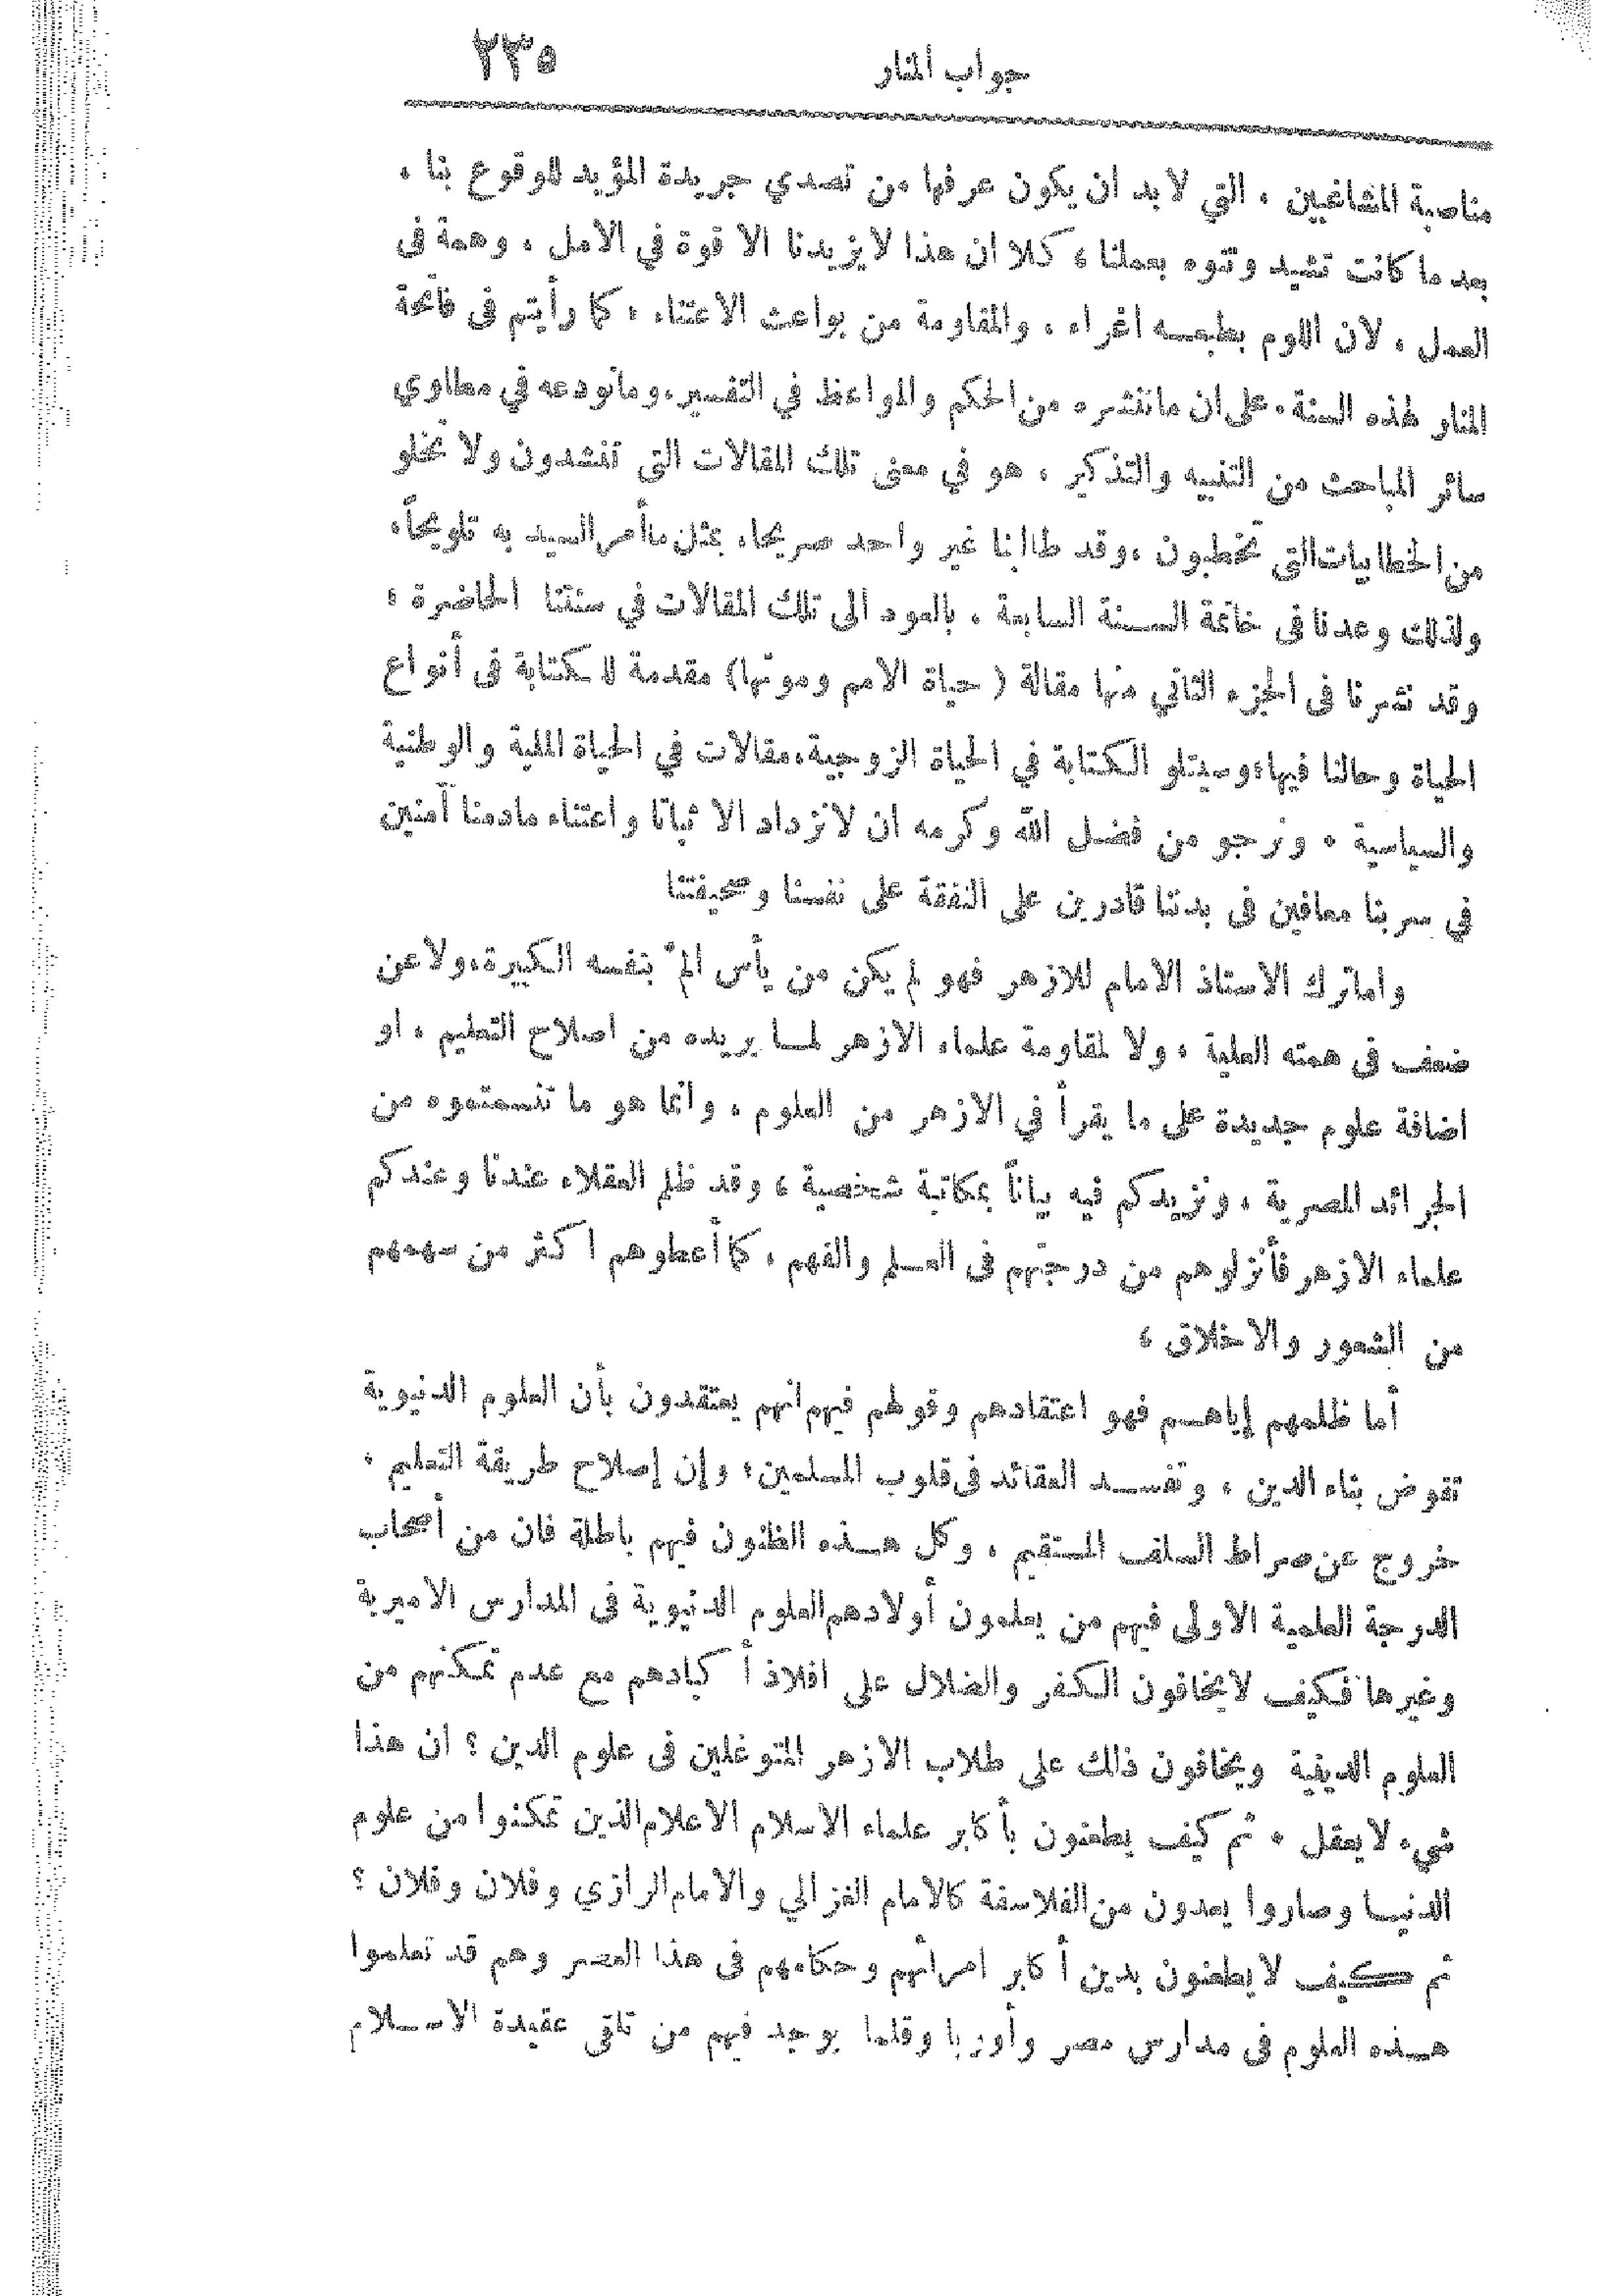 جواب المنار ٢٣٥
مناصبة المشاغبين ، التي لا بد ان يكون عرفها من تصدي جريدة المؤيد للوقوع بنا ،
بعد ما كانت تشيد وتنوه بعملنا ، كلا ان هذا لا يزيدنا الا قوة في الامل ، وهمة فى
العمل ، لان اللوم بطبعه اغراء ، والمقاومة من بواعث الاعتناء ، كما رأيتم فى فاتحة
المنار لهذه السنة ، على ان ما ننشره من الحكم والمواعظ في التفسير ، وما نودعه في مطاوي
سائر المباحث من التنبيه والتذكير ، هو في معنى تلك المقالات التى تنشدون ولا تخلو
من الخطابيات التى تخطبون ، وقد طالبنا غير واحد صريحا ، بمثل ما أمر السيد به تلويحاً ،
ولذلك وعدنا فى خاتمة السنة السابعة ، بالعود الى تلك المقالات في سنتنا الحاضرة ؛
وقد نشرنا فى الجزء الثاني منها مقالة ( حياة الامم وموتها ) مقدمة للكتابة فى أنواع
الحياة وحالنا فيها ؛ وسيتلو الكتابة في الحياة الزوجية ، مقالات في الحياة الملية والوطنية
والسياسية ٠ ونرجو من فضل الله وكرمه ان لا نزداد الا ثباتا واعتناء مادمنا آمنين
في سربنا معافين فى بدننا قادرين على النفقة على نفسنا وصحيفتنا
واما ترك الاستاذ الامام للازهر فهو لم يكن من يأس المّ بنفسه الكبيرة ، ولا عن
ضعف فى همته العلية ، ولا لمقاومة علماء الازهر لما يريده من اصلاح التعليم ، او
اضافة علوم جديدة على ما يقرأ في الازهر من العلوم ، وانما هو ما تنسمتموه من
الجرائد المصرية ، ونزيدكم فيه بياناً بمكاتبة شخصية ، وقد ظلم العقلاء عندنا وعندكم
علماء الازهر فأنزلوهم من درجتهم فى العلم والفهم ، كما أعطوهم اكثر من سهمهم
من الشعور والاخلاق ،
أما ظلمهم إياهم فهو اعتقادهم وقولهم فيهم انهم يعتقدون بأن العلوم الدنيوية
تقوض بناء الدين ، وتفسد العقائد فى قلوب المسلمين ؛ وإن إصلاح طريقة التعليم ،
خروج عن صراط السلف المستقيم ، وكل هذه الظنون فيهم باطلة فان من أصحاب
الدرجة العلمية الاولى فيهم من يعلمون أولادهم العلوم الدنيوية فى المدارس الاميرية
وغيرها فكيف لا يخافون الكفر والضلال على افلاذ أكبادهم مع عدم تمكنهم من
العلوم الدينية ويخافون ذلك على طلاب الازهر المتوغلين فى علوم الدين ؟ ان هذا
شيء لا يعقل ٠ ثم كيف يطعنون بأكابر علماء الاسلام الاعلام الذين تمكنوا من علوم
الدنيا وصاروا يعدون من الفلاسفة كالامام الغزالي والامام الرازي وفلان وفلان ؟
ثم كيف لا يطعنون بدين أكابر امرائهم وحكامهم فى هذا العصر وهم قد تعلموا
هذه العلوم فى مدارس مصر وأوربا وقلما يوجد فيهم من تلقى عقيدة الاسلام